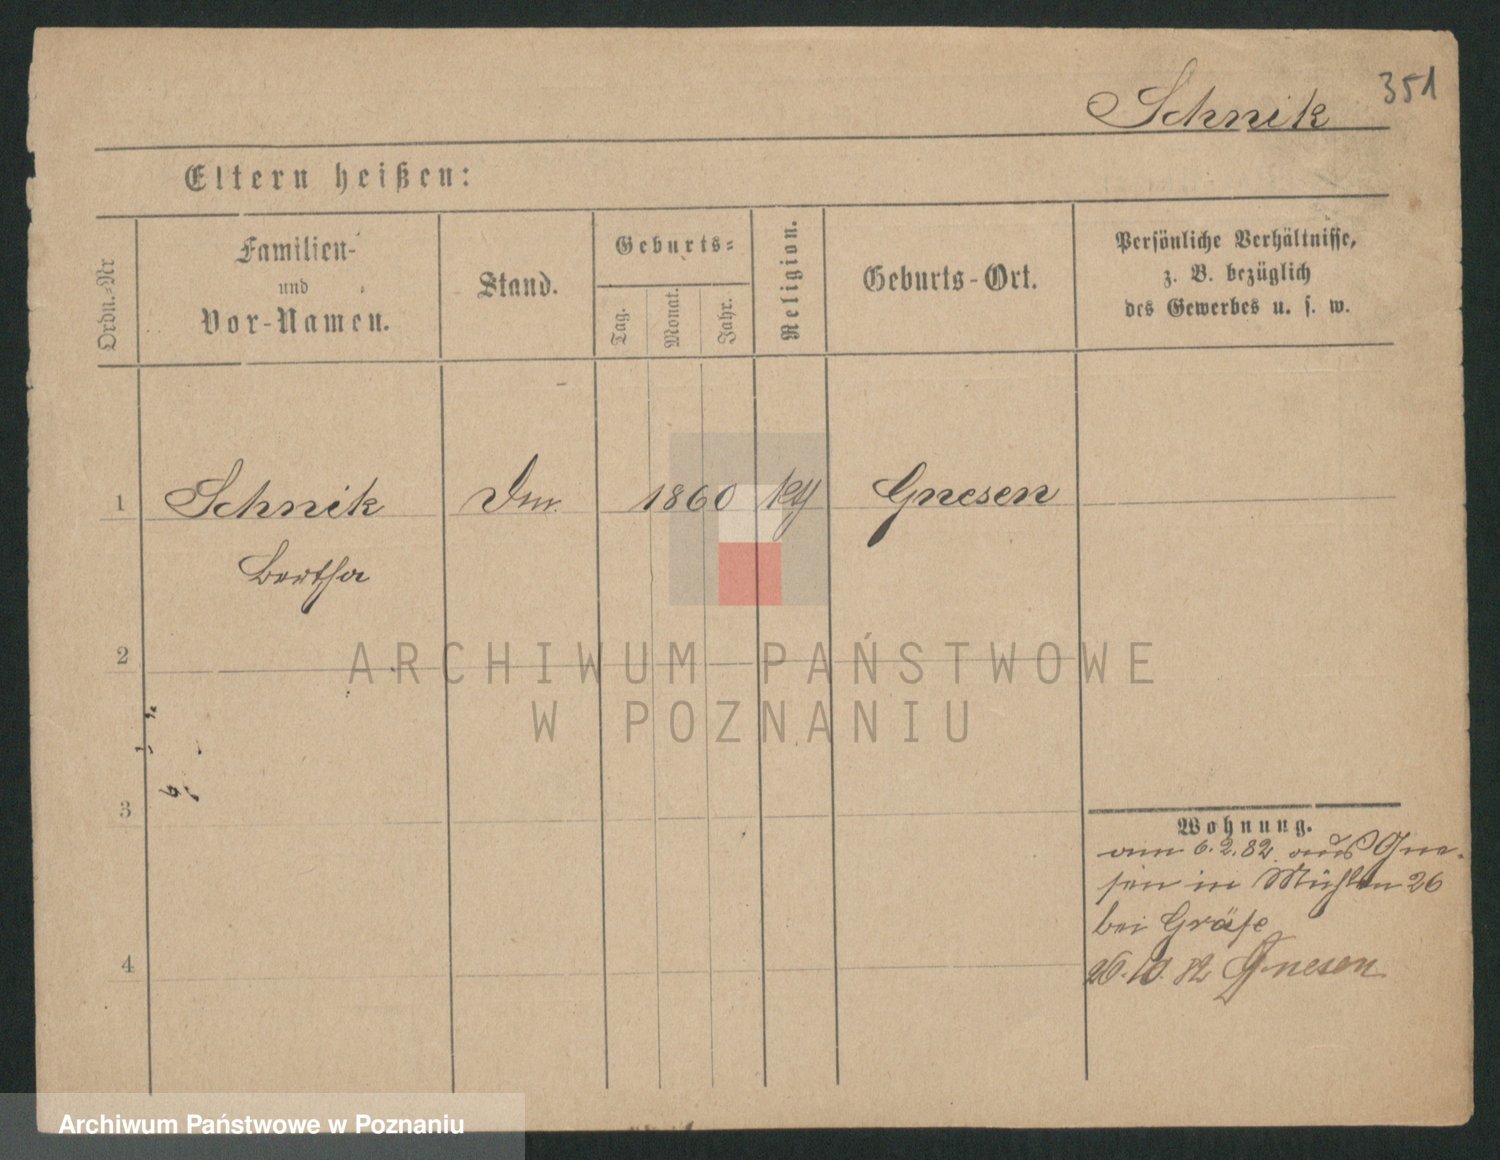 351
Schnik
Eltern heißen:
Ordn.-Nr
Familien-
und
Vor-Namen.
Stand.
Geburts-
Tag.
Monat.
Jahr.
Religion.
Geburts-Ort.
Persönliche Verhältnisse,
z. B. bezüglich
des Gewerbes u. s. w.
1 Schnik 1860 Gnesen
Bertha
2
ARCHIWUM PAŃSTWOWE
W POZNANIU
3
Wohnung.
am 6.2.82. aus Gne-
sen in Mühlen 26
bei Gräfe
4
26.10.82 Gnesen
Archiwum Państwowe w Poznaniu